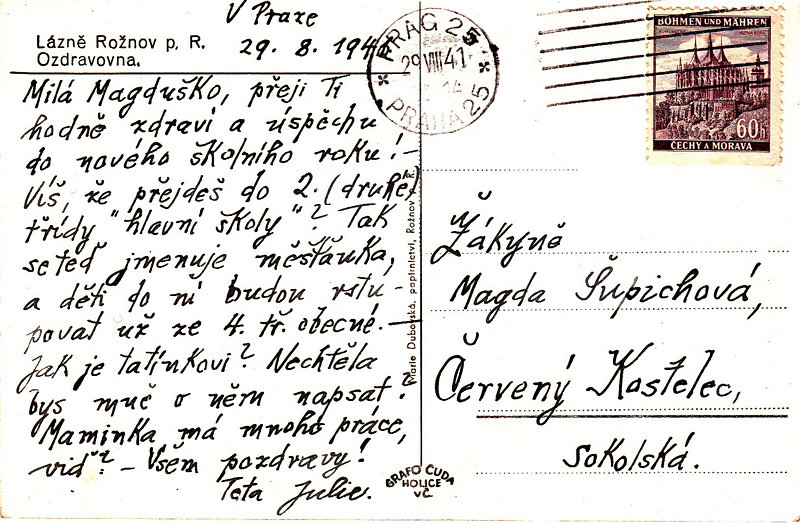 Lázně Rožnov p. R.
Ozdravovna.
V Praze
29. 8. 194
Milá Magduško, přeji Ti
hodně zdraví a úspěchu
do nového školního roku! –
Víš, že přejdeš do 2. (druhé)
třídy "hlavní školy"? Tak
se teď jmenuje měšťanka,
a děti do ní budou vstu-
povat už ze 4. tř. obecné. –
Jak je tatínkovi? Nechtěla
bys mně o něm napsat?
Maminka má mnoho práce,
viď? – Všem pozdravy!
Teta Julie.
Marie Dubovská, papírnictví, Rožnov
GRAFO ČUDA
HOLICE
v Č.
PRAG 25
29 VIII 41
14
PRAHA 25
BÖHMEN UND MÄHREN
60h
ČECHY A MORAVA
Žákyně
Magda Šupichová,
Červený Kostelec,
Sokolská.